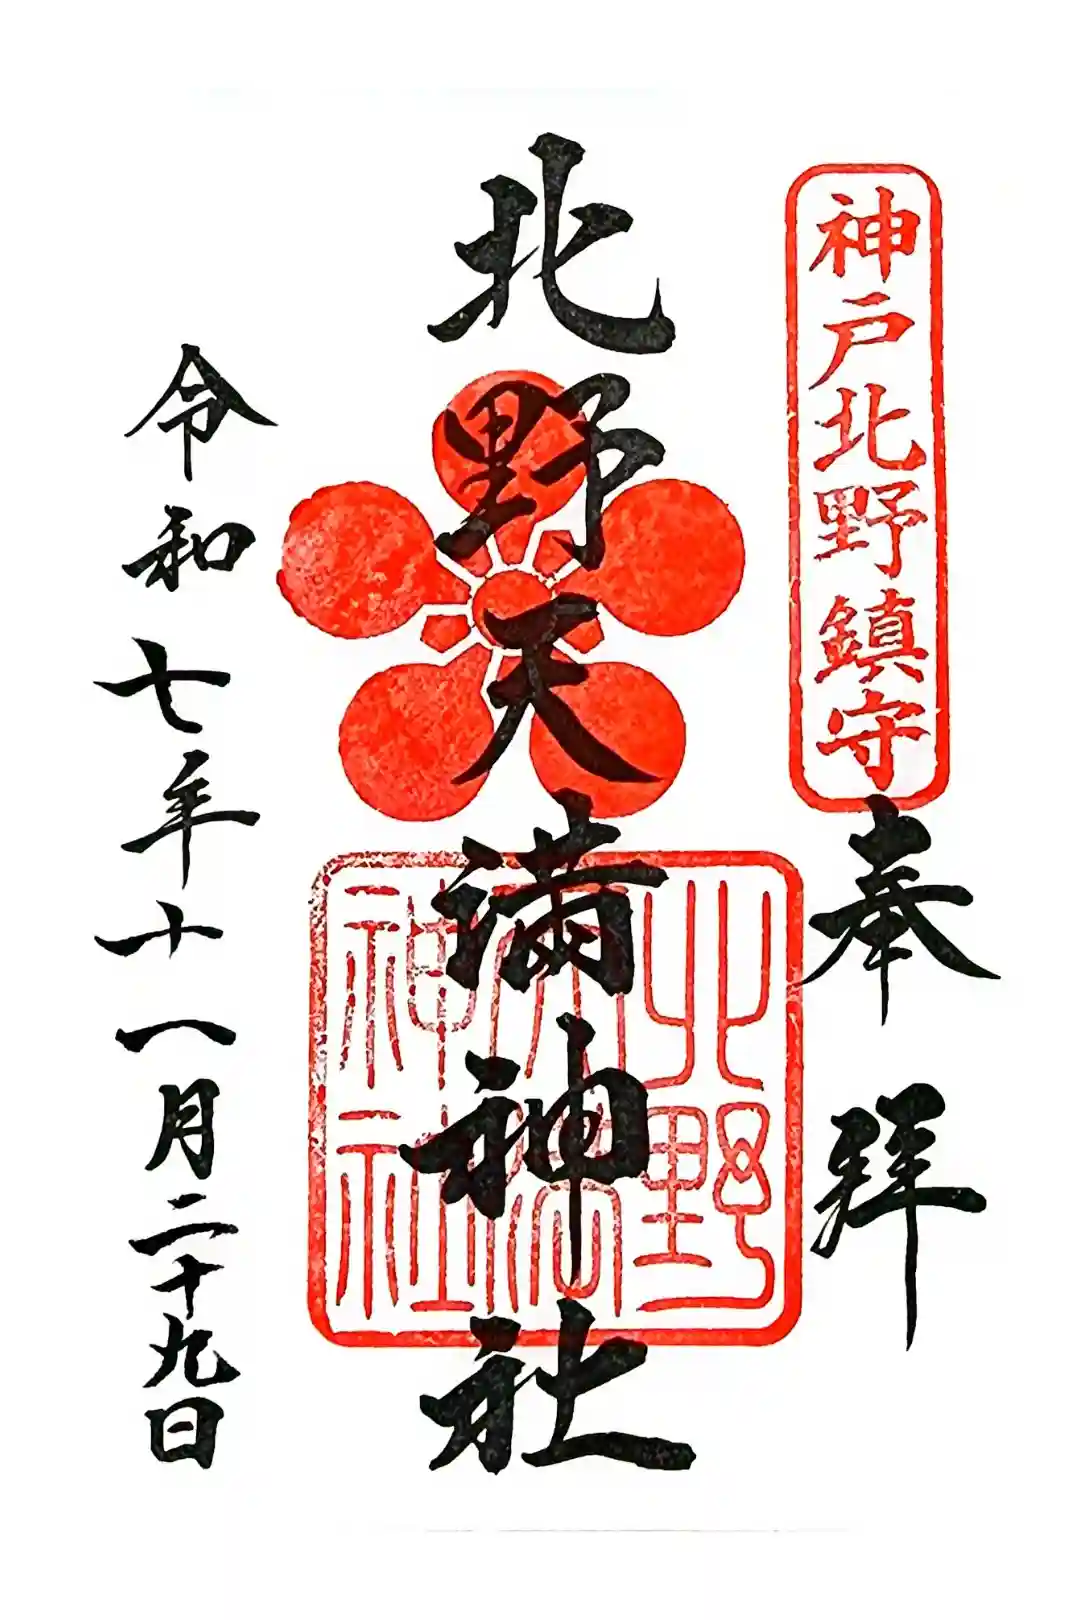 神戸北野鎮守
奉拜
北野天満神社
北野
天満
神社
令和七年十一月二十九日